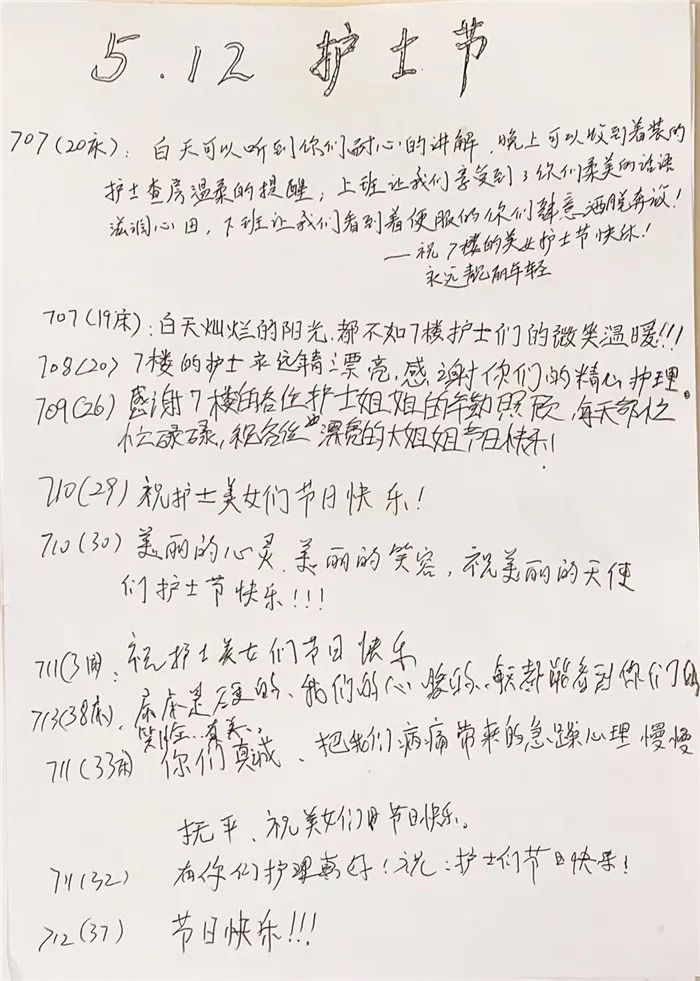 5.12 护士节
707(20床): 白天可以听到你们耐心的讲解,晚上可以收到着装的
护士查房温柔的提醒;上班让我们享受到了你们柔美的话语
滋润心田,下班让我们看到着便服的你们肆意洒脱奔放!
——祝7楼的美女护士节快乐!
永远靓丽年轻
707(19床): 白天灿烂的阳光,都不如7楼护士们的微笑温暖!!!
708(20) 7楼的护士永远年轻漂亮,感谢你们的精心护理。
709(26) 感谢7楼的各位护士姐姐的辛勤照顾,每天都忙
忙碌碌,祝各位漂亮的大姐姐节日快乐!
710(29) 祝护士美女们节日快乐!
710(30) 美丽的心灵,美丽的笑容,祝美丽的天使
们护士节快乐!!!
711(3 : 祝护士美女们节日快乐
713(38床), 尿床是 的、我们的心 暖的、每天都能看到你们的
笑脸 真美.
711(33床 你们真诚、把我们病痛带来的急躁心理慢慢
抚平、祝美女们节日快乐。
711(32) 有你们护理真好!祝:护士们节日快乐!
712(37) 节日快乐!!!